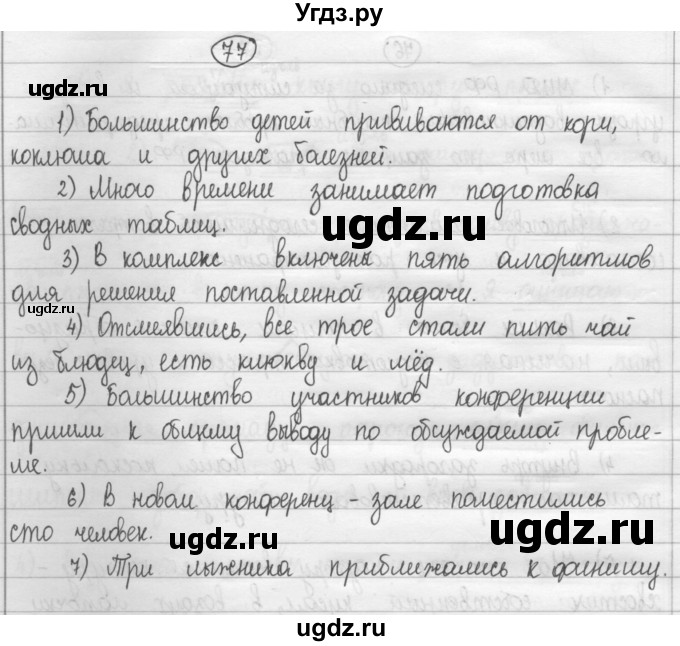 Угдз.ру
77
ugdz.ru
1) Большинство детей прививаются от кори,
коклюша и других болезней.
2) Много времени занимает подготовка
сводных таблиц.
ugdz.ru
3) В комплекс включены пять алгоритмов
для решения поставленной задачи.
ugdz.ru
4) Отсмеявшись, все трое стали пить чай
из блюдец, есть клюкву и мёд.
5) Большинство участников конференции
пришли к общему выводу по обсуждаемой пробле-
ме.
6) В новом конференц-зале поместились
сто человек.
ugdz.ru
ugdz.ru
7) Три лыжника приближались к финишу.
ugdz.ru